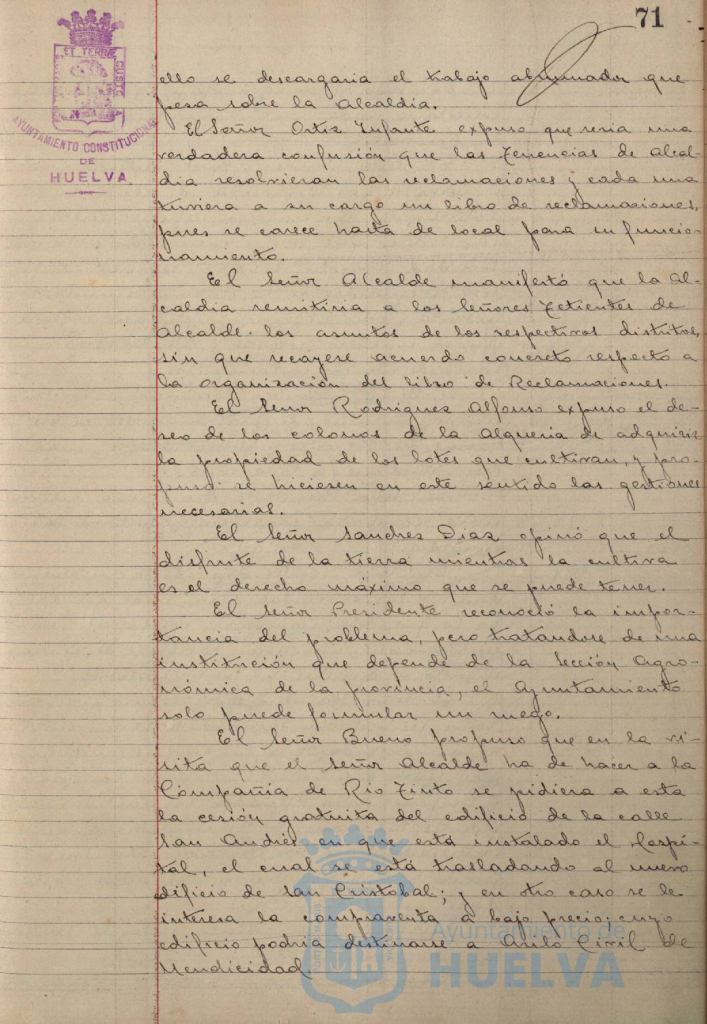 71
ET TERRÆ CUSTO
AYUNTAMIENTO CONSTITUCIONAL
DE
HUELVA
ello se descargaria el trabajo abrumador que
pesa sobre la Alcaldía.
El Señor Ortiz Infante expuso que seria una
verdadera confusión que las Tenencias de Alcal-
dia resolvieran las reclamaciones y cada una
tuviera a su cargo un libro de reclamaciones,
pues se carece hasta de local para su funcio-
namiento.
El Señor Alcalde manifestó que la Al-
caldia remitiria a los Señores Tenientes de
Alcalde los asuntos de los respectivos distritos,
sin que recayese acuerdo concreto respecto a
la organización del libro de Reclamaciones.
El Señor Rodriguez Alfonso expuso el de-
seo de los colonos de la Alqueria de adquirir
la propiedad de los lotes que cultivan, y pro-
puso se hiciesen en este sentido las gestiones
necesarias.
El Señor Sanchez Diaz opinó que el
disfrute de la tierra mientras la cultiva
es el derecho máximo que se puede tener.
El Señor Presidente reconoció la impor-
tancia del problema, pero tratandose de una
institución que depende de la Sección Agro-
nómica de la provincia, el Ayuntamiento
solo puede formular un ruego.
El Señor Bueno propuso que en la vi-
sita que el Señor Alcalde ha de hacer a la
Compañia de Rio Tinto se pidiera a esta
la cesión gratuita del edificio de la calle
San Andrés en que está instalado el Hospi-
tal, el cual se está trasladando al nuevo
edificio de San Cristobal; y en otro caso se le
interesa la compraventa a bajo precio; cuyo
edificio podria destinarse a Asilo Civil de
Mendicidad.
Ayuntamiento de
HUELVA